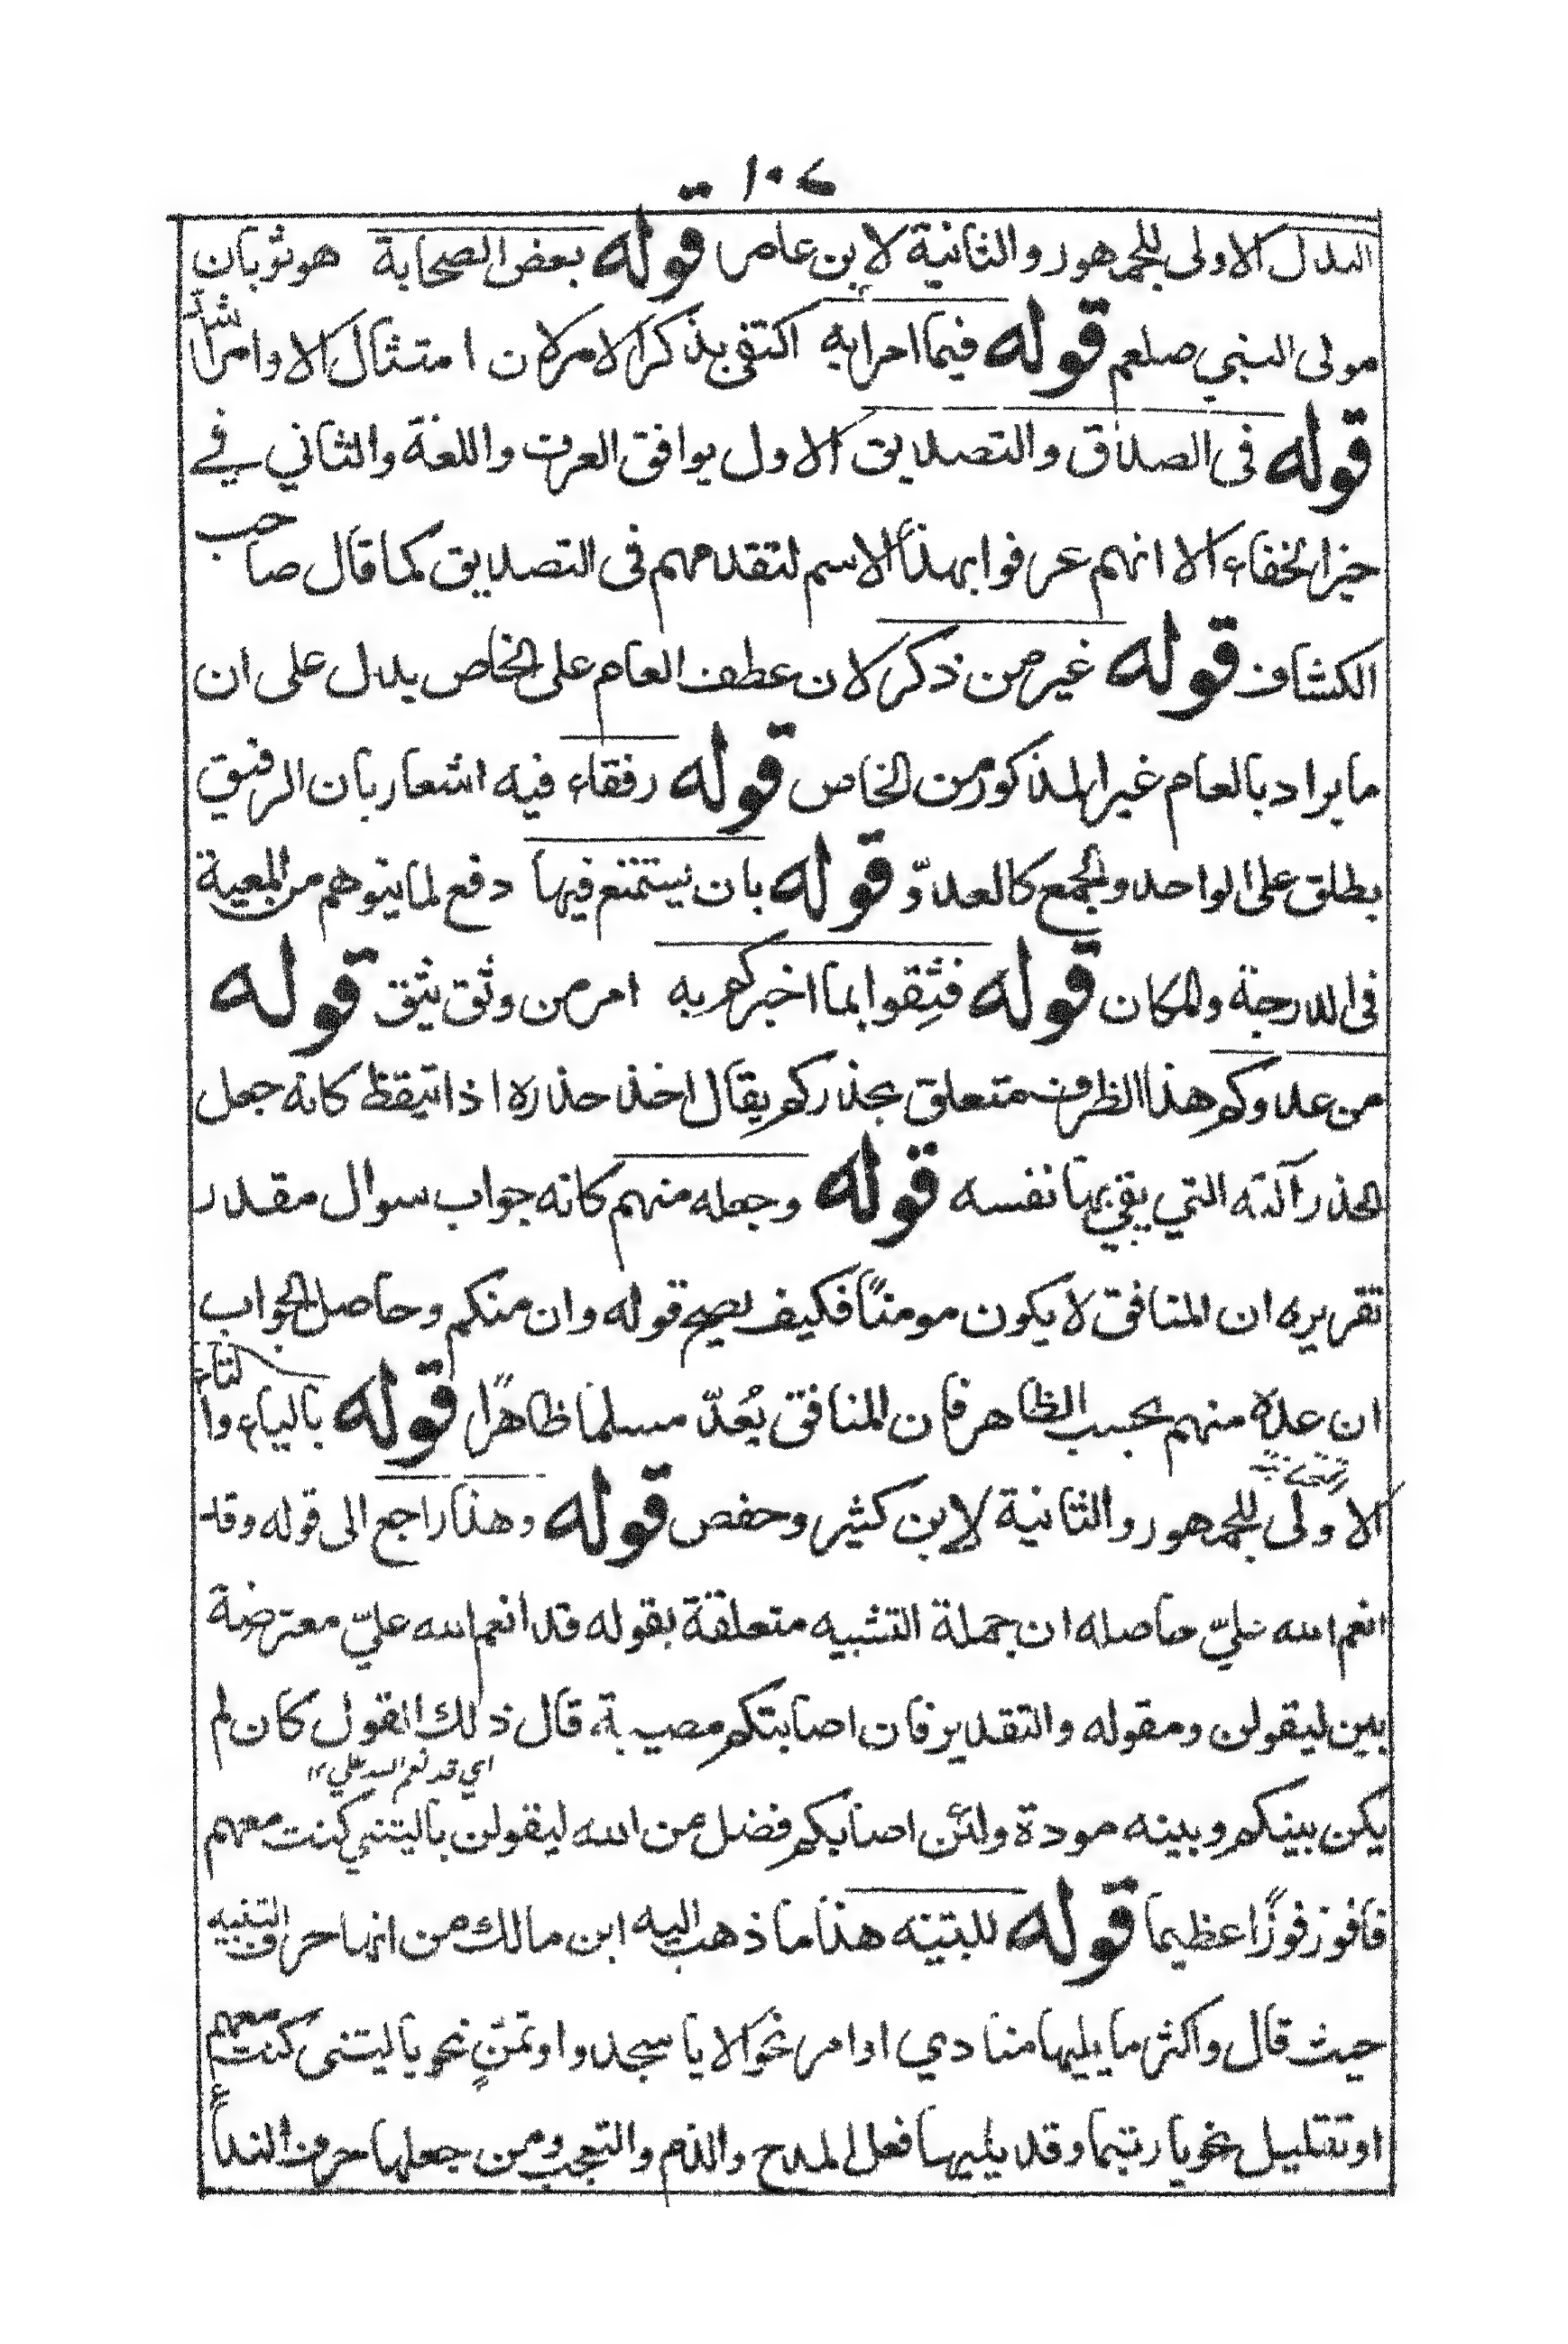 ١٠٧
البدل الاولى للجمهور والثانية لابن عامر قوله بعض الصحابة هو ثوبان
مولى النبي صلعم قوله فيما امرا به اكتفى بذكر الامر لان امتثال الاوامر اشد
قوله فى الصداق والتصديق الاول يوافق العرف واللغة والثاني في
حيز الخفاء الا انهم عرفوا بهذا الاسم لتقدمهم فى التصديق كما قال صاحب
الكشاف قوله غير من ذكر لان عطف العام على الخاص يدل على ان
ما يراد بالعام غير المذكور من الخاص قوله رفقاء فيه اشعار بان الرفيق
يطلق على الواحد والجمع كالعدوّ قوله بان يستمتع فيها دفع لما يتوهم من المعية
فى الدرجة والمكان قوله فثِقوا بما اخبركم به امر من وثق يثق قوله
من عدوكم هذا الظرف متعلق بحذركم يقال اخذ حذره اذا تيقظ كانه جعل
الحذر آلته التي يقي بها نفسه قوله وجعله منهم كانه جواب سوال مقدر
تقريره ان المنافق لا يكون مومنًا فكيف يصح قوله وان منكم وحاصل الجواب
ان عده منهم بحسب الظاهر فان المنافق يُعدّ مسلما ظاهرًا قوله بالياء والتاء
الاولى للجمهور والثانية لابن كثير وحفص قوله وهذا راجع الى قوله وقد
انعم الله عليّ حاصله ان جملة التشبيه متعلقة بقوله قد انعم الله عليّ معترضة
بين ليقولن ومقوله والتقدير فان اصابتكم مصيبة قال ذلك القول كان لم
اي قد انعم الله علي ١٢
يكن بينكم وبينه مودة ولئن اصابكم فضل من الله ليقولن ياليتني كنت معهم
فافوز فوزًا عظيما قوله للتبنيه هذا ما ذهب اليه ابن مالك من انها حرف التنبيه
حيث قال واكثر ما يليها منادي او امر نحو الا يا سجدوا او تمنٍّ نحو ياليتنى كنت معهم
او تقليل نحو يا ربتما وقد يليها فعل المدح والذم والتعجب ومن جعلها حرف النداء